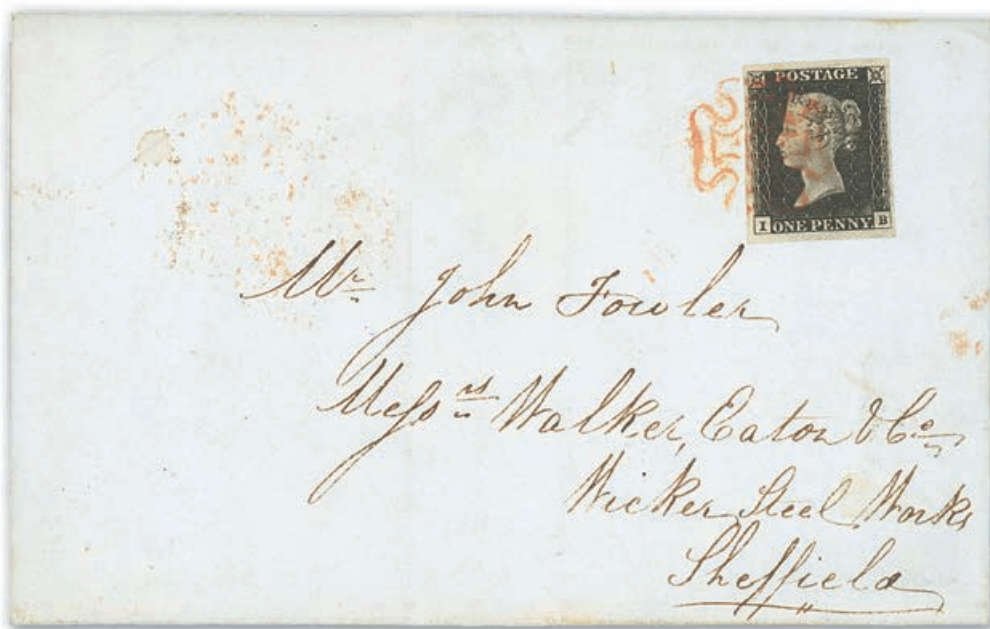 POSTAGE
I ONE PENNY B
Mr John Fowler
Messrs Walker, Eaton & Co
Wicker Steel Works
Sheffield